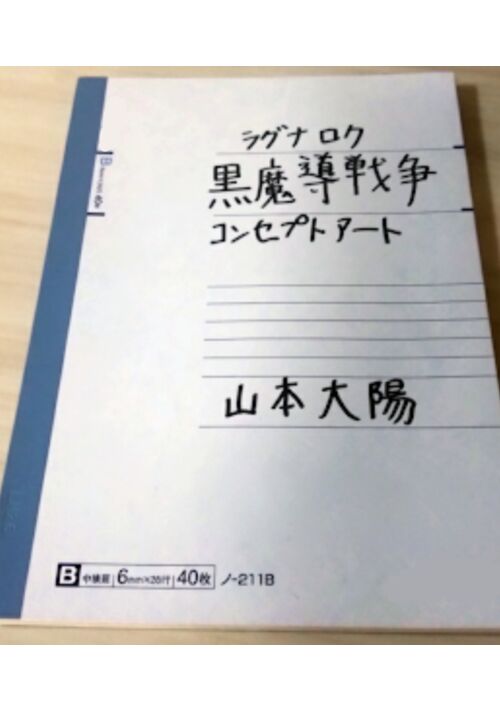 ラグナロク
黒魔導戦争
コンセプトアート
山本大陽
B 中横罫 6mm×35行 40枚 ノ-211B